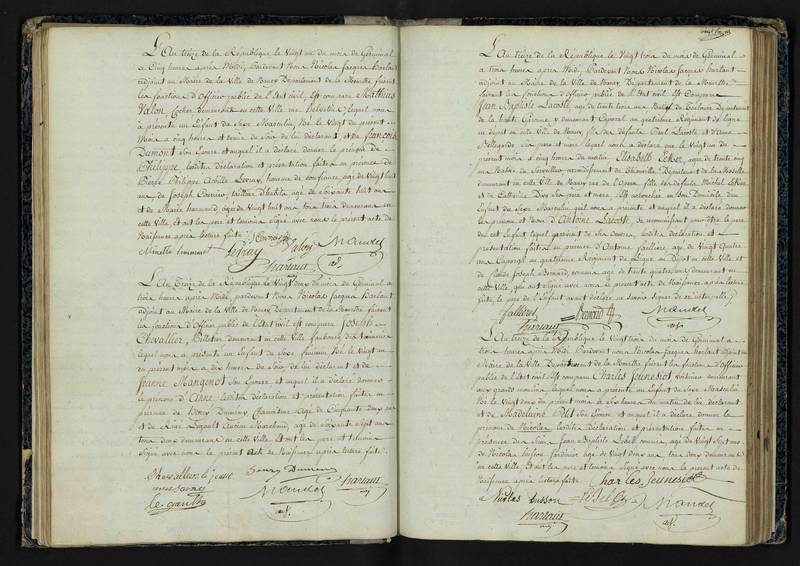 L'An treize de la République le Vingt un du mois de Germinal
à Cinq heures après Midi, Pardevant Nous Nicolas Jacques Harlaut
adjoint au Maire de la Ville de Nancy Département de la Meurthe faisant
les fonctions d'Officier public de l'Etat civil, Est comparu Mathias
Valoy, Cocher demeurant en cette Ville lequel nous
a présenté un Enfant du Sexe Masculin, Né le Vingt du présent
Mois à cinq heures du Soir de lui déclarant, et de françoise
Dumont son Epouse et auquel il a déclaré donner le prénom de
Philippe lesdites déclaration et présentation faites en présence de
Pierre Philippe Achille Leroy, homme de confiance, âgé de Vingt huit
ans de Joseph agé de Soixante huit ans
et de Marie agé de Vingt huit ans tous trois demeurans en
cette Ville, Et ont les père et témoins Signé avec nous le présent acte de
Naissance après lecture faite
Leroy Valoy Mandel
Harlaut adj.
L'An Treize de la République le Vingt deux du mois de Germinal à
trois heures après Midi, pardevant Nous Nicolas Jacques Harlaut
adjoint au Maire de la Ville de Nancy Département de la Meurthe faisant
les fonctions d'Officier public de l'Etat civil est comparu Joseph
Chevallier, demeurant en cette Ville faubourg des trois maisons
lequel nous a présenté un Enfant du Sexe féminin Né le Vingt un
du présent mois à dix heures du Soir de lui déclarant et de
Jeanne Mangenot Son Epouse, et auquel il a déclaré donner
le prénom d'Anne lesdites déclaration et présentation faites en
présence de Henry Dumery Chaumetier Agé de Cinquante deux ans
et de Marchand, agé de Soixante Sept ans
tous deux demeurans en cette Ville et ont les père et témoins
Signé avec nous le présent Acte de Naissance après lecture faite
Chevallier le jeune henry Dumery
Mandel Harlaut
le gault adj.
L'An treize de la République le Vingt trois du mois de Germinal
à trois heures après Midi, Pardevant Nous Nicolas Jacques harlaut
adjoint au Maire de la Ville de Nancy Département de la Meurthe
faisant les fonctions d'Officier public de l'Etat civil, Est Comparu
Jean Baptiste Lacoste agé de trente trois ans Natif de Toulouse Département
de la haute Garonne, y demeurant Caporal au quatrième Régiment de ligne
en dépôt en cette Ville de Nancy, fils des défunts Paul Lacoste et d'Anne
Bellegarde, ses père et mère lequel nous a déclaré que le Vingt un du
présent mois à cinq heures du matin Elisabeth Ecker, agée de trente cinq
ans Native de arrondissement de Thionville Département de la Moselle
demeurant en cette Ville de Nancy rue de l'Opera fille des défunts Michel Ecker
et de Catherine ses père et mère, Est accouchée en Son Domicile d'un
Enfant du Sexe Masculin, qu'il nous a présenté et auquel il a déclaré donner
les prénom et Nom d'Antoine Lacoste, se reconnaissant pour être le père
dudit Enfant lesdites déclaration et
présentation faites en présence d'Antoine faillieres agé de Vingt quatre
ans Caporal au quatrième Régiment de Ligne au Dépôt en cette Ville, et
de Claude Joseph Bernard, commis agé de trente quatre ans demeurant en
cette Ville, qui ont signé avec nous le présent acte de Naissance après lecture
faite, le père de l'Enfant ayant déclaré ne savoir signer de ce interpellé
faillieres Bernard Mandel
Harlaut adj.
L'An treize de la République le Vingt trois du mois de Germinal à
trois heures après Midi Pardevant Nous Nicolas Jacques harlaut adjoint au
Maire de la Ville Département de la Meurthe faisant les fonctions d'Officier
public de l'Etat civil, Est comparu Charles Jeunesiot voiturier demeurant
aux grands moulins lequel nous a présenté un Enfant du Sexe Masculin
Né le Vingt deux du présent mois à Six heures du matin de lui déclarant
et de Madelaine Petit Son Epouse et auquel il a déclaré donner le
prénom de Nicolas lesdites Déclaration et présentation faites en
présence de Jean Baptiste commis, agé de Vingt Sept ans
de Nicolas Jardinier agé de Vingt deux ans tous deux demeurans
en cette Ville, et ont les père et témoins Signé avec nous le présent acte de
Naissance après lecture faite Charles Jeunesiot
Nicolas Mandel
Harlaut adj.